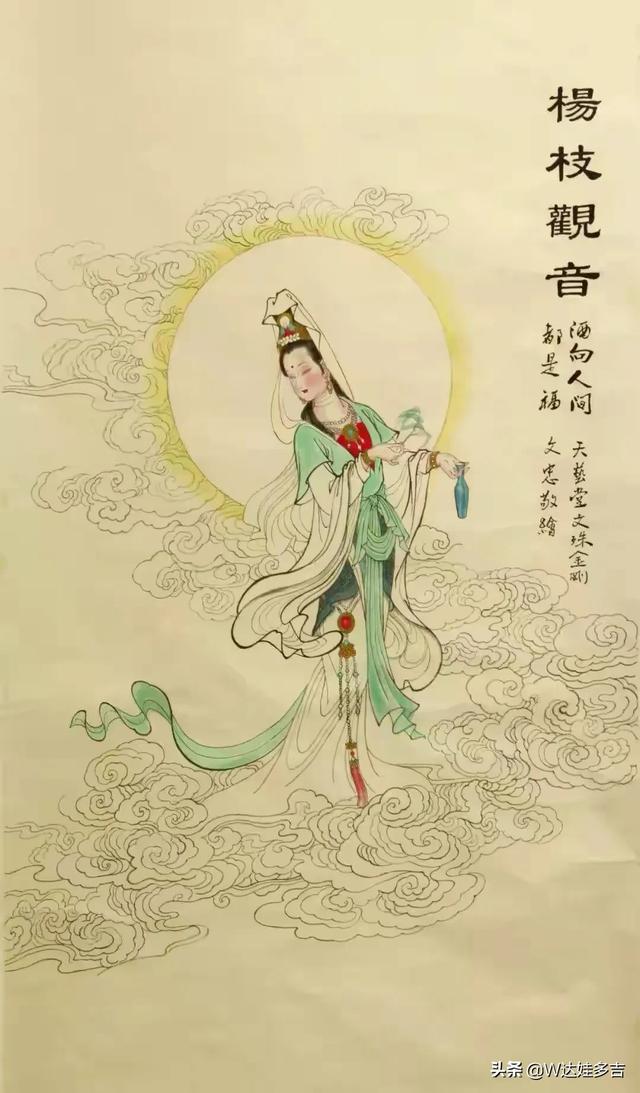 楊枝觀音
洒向人间
都是福
天藝堂文珠金剛
文忠敬繪
头条 @W达娃多吉